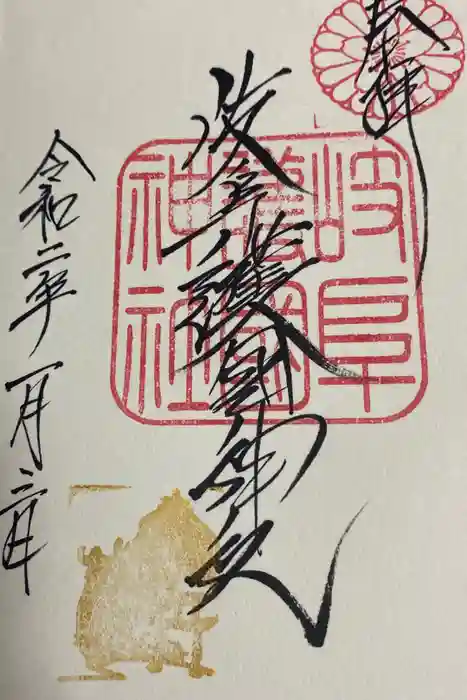 奉拝
岐阜護國神社
岐阜
護國
神社
令和二年一月